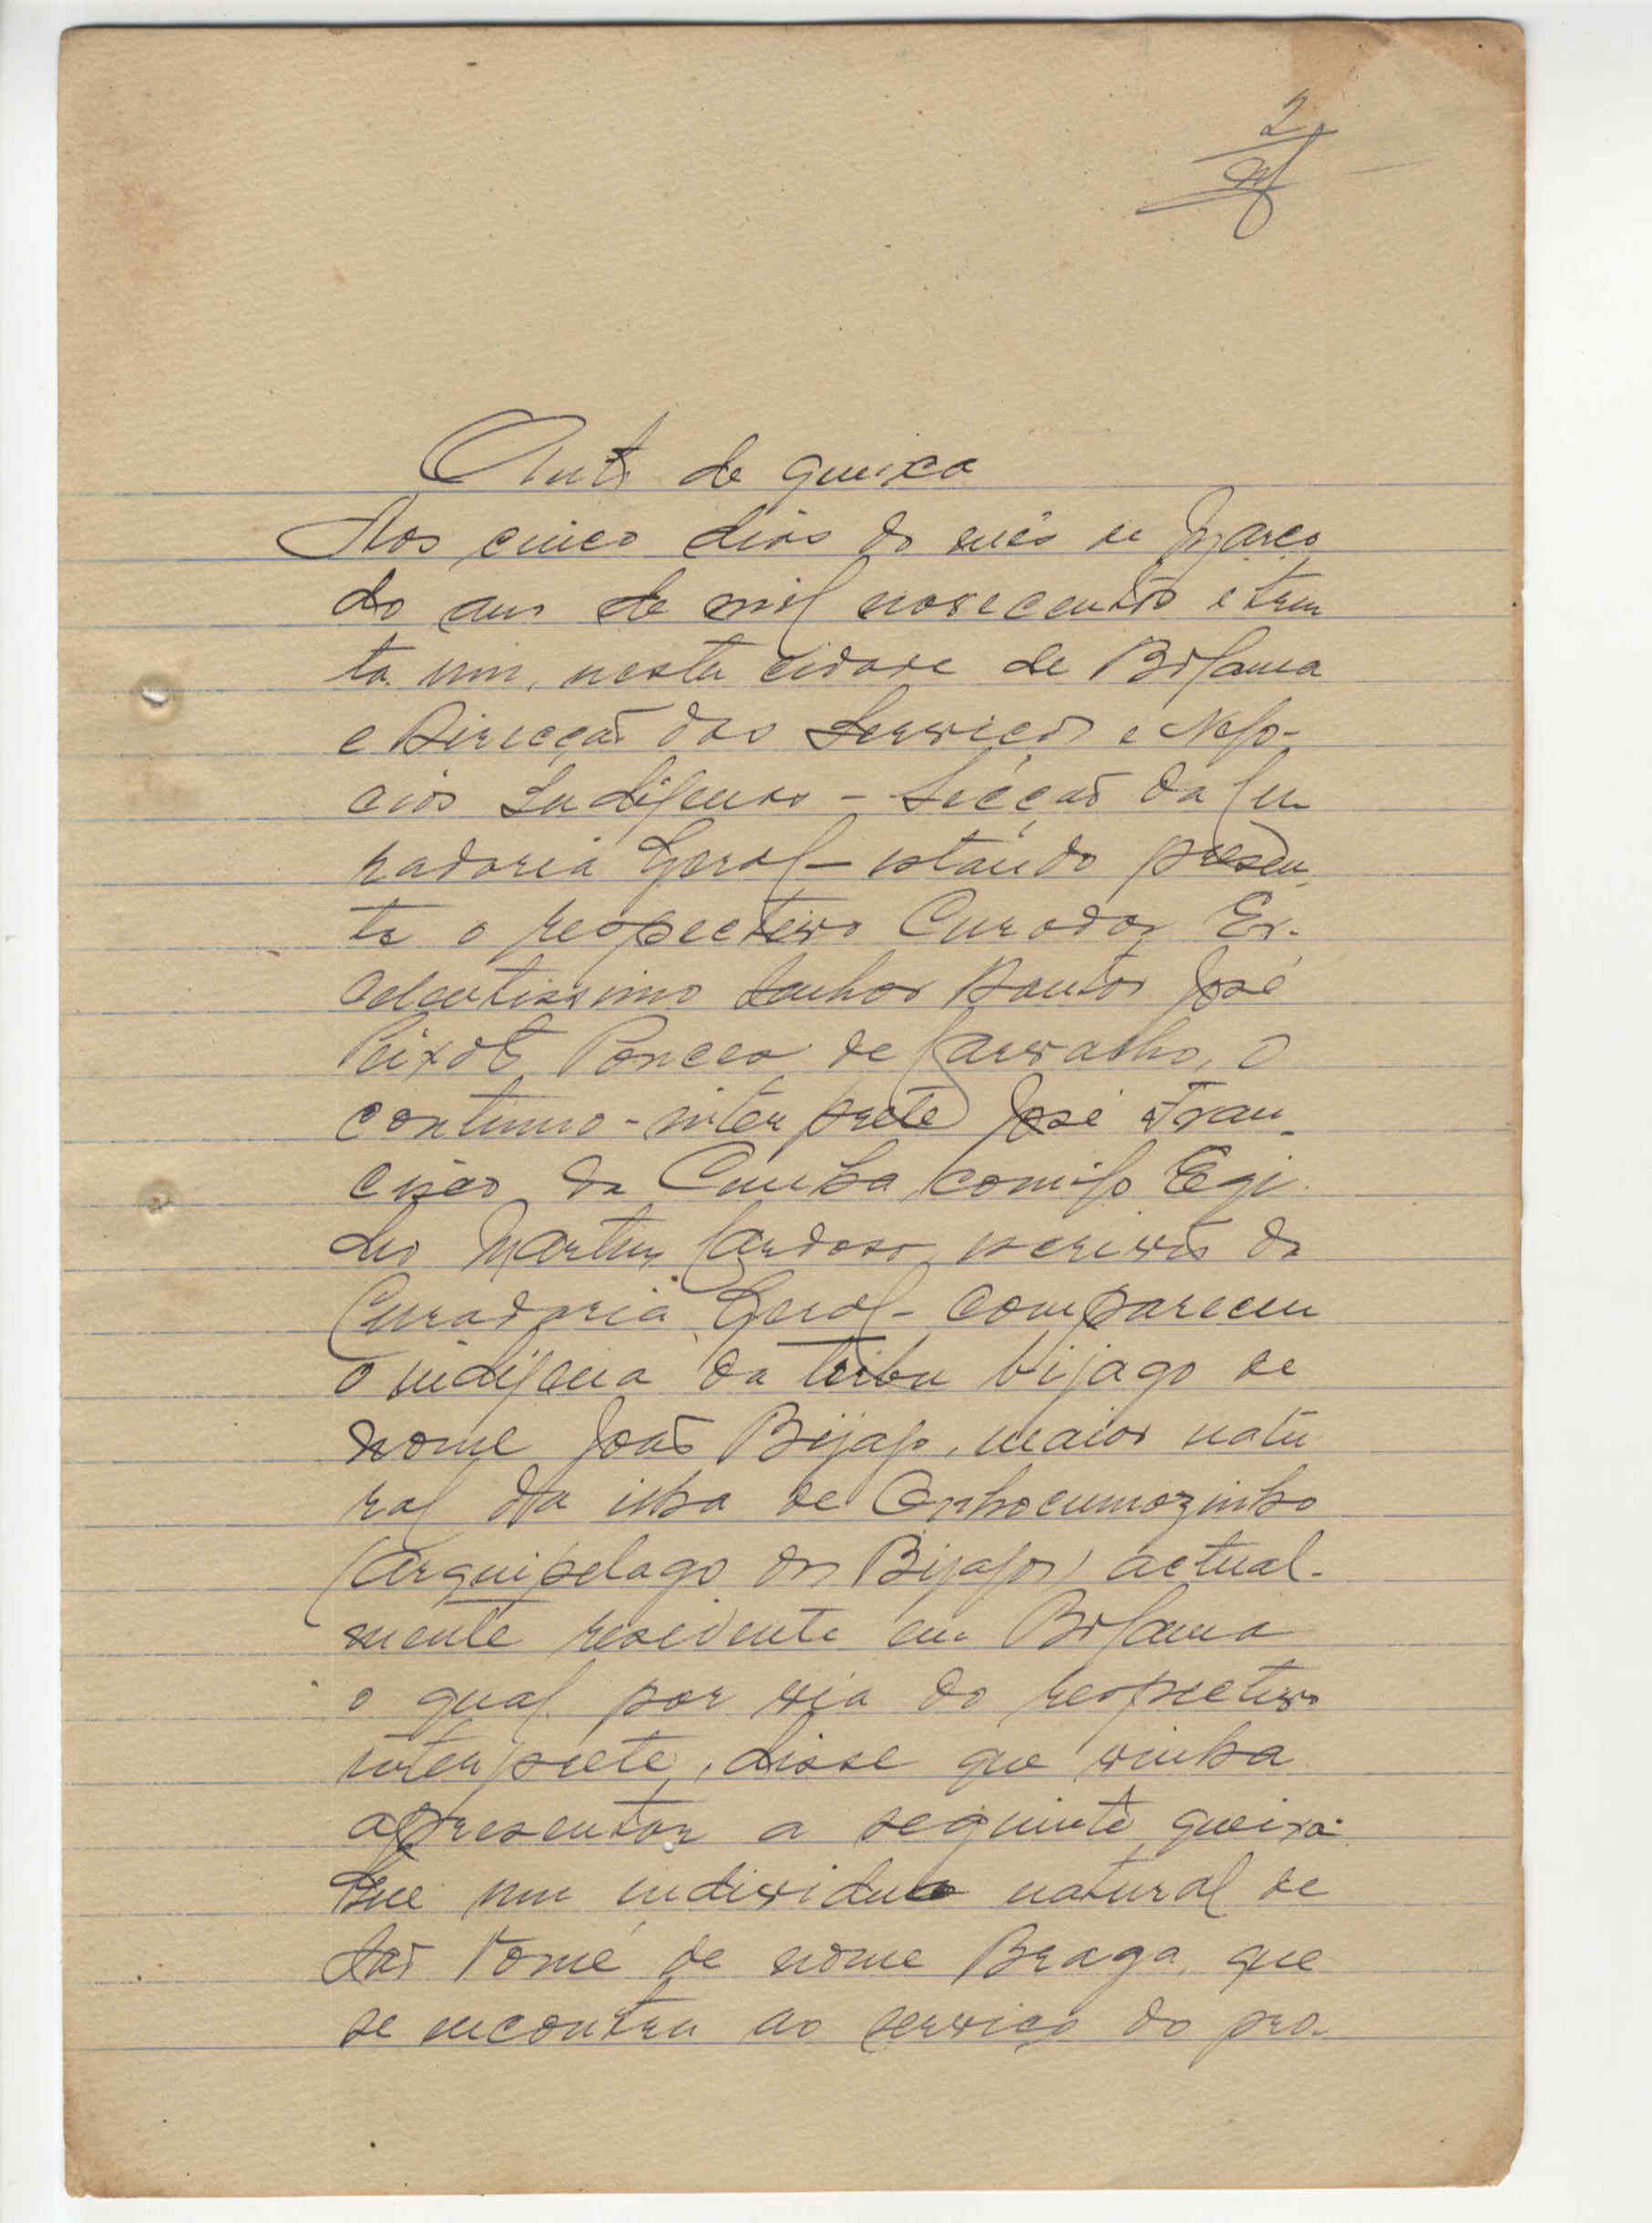 2
Auto de queixa
Aos cinco dias do mês de Março
do ano de mil novecentos e trin
ta um, nesta cidade de Bolama
e Direcção dos Serviços e Negó-
cios Indígenas - Secção da Cu
radoria Geral - estando presen
te o respectivo Curador Ex-
celentissimo Senhor Doutor José
Peixoto Ponces de Carvalho, o
continuo-interprete José Fran-
cisco da Cunha, comigo Egi
dio Martins Cardoso, escrivão da
Curadoria Geral - compareceu
o indígena da tribu bijago de
nome João Bijago, maior natu
ral da ilha de Onhocumozinho
(arquipelago dos Bijagos) actual-
mente residente em Bolama
o qual por via do respectivo
interprete, disse que vinha
apresentar a seguinte queixa
Que um individuo natural de
São Tomé de nome Braga, que
se encontra ao serviço do pro-